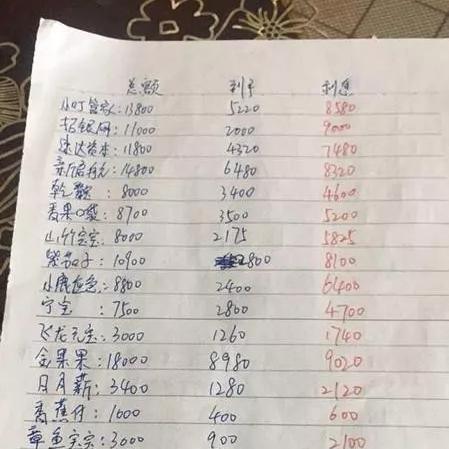 总额 到手 利息
小叮管家:13800 5220 8580
招银网:11000 2000 9000
速达资本:11800 4320 7480
新启航:14800 6480 8320
乾数:8000 3400 4600
青果口袋:8700 3500 5200
山竹宝宝:8000 2175 5825
:10900 2800 8100
小鹿应急:8800 2400 6400
宁宝:7500 2800 4700
飞龙元宝:3000 1260 1740
金果果:18000 8980 9020
月月薪:3400 1280 2120
香蕉仔:1000 400 600
章鱼宝宝:3000 900 2100